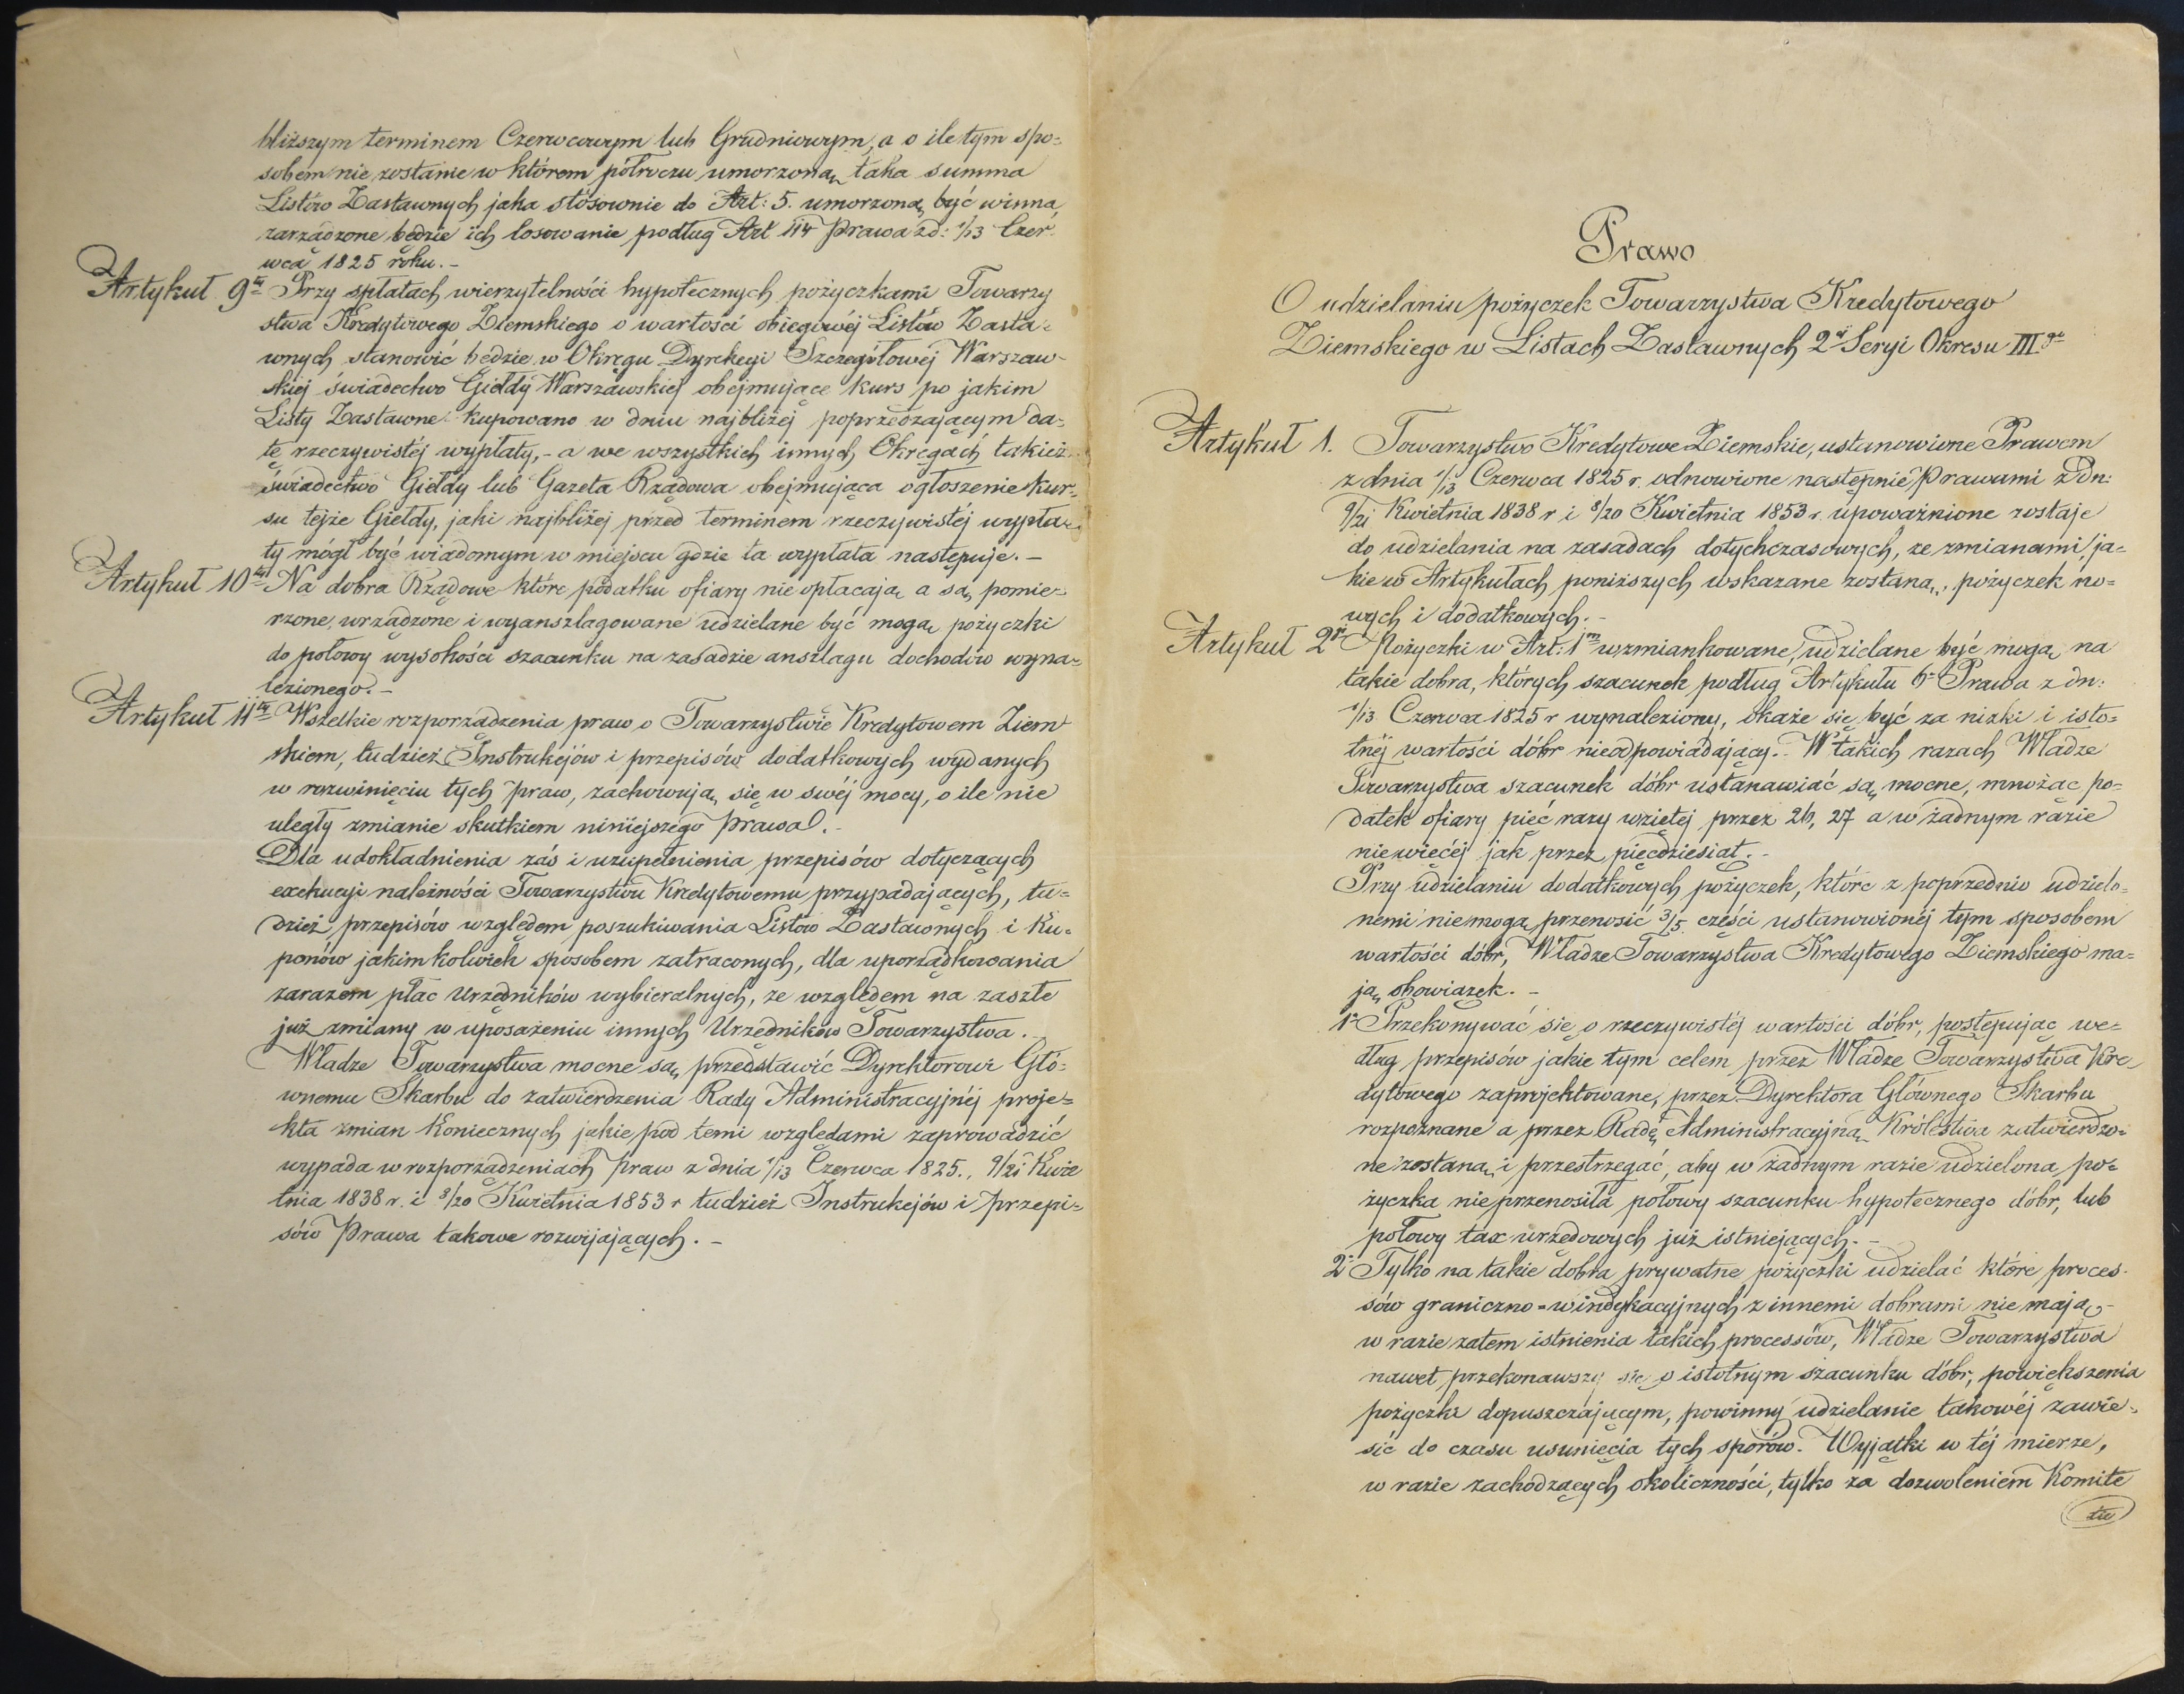 bliższym terminem Czerwcowym lub Grudniowym, a o ile tym spo=
sobem nie zostanie w którem półroczu umorzoną taka summa
Listów Zastawnych jaka stósownie do Art: 5. umorzoną być winna
zarządzone będzie ich losowanie podług Art 114 Prawa zd: 1/13 Czer=
wca 1825 roku. –
Artykuł 9ty Przy spłatach wierzytelności hypotecznych pożyczkami Towarzy
stwa Kredytowego Ziemskiego o wartości obiegowéj Listów Zasta=
wnych stanowić będzie w Okręgu Dyrekcyi Szczegółowéj Warszaw=
skiej świadectwo Giełdy Warszawskiej obejmujące kurs po jakim
Listy Zastawne kupowano w dniu najbliżéj poprzedzającym da=
tę rzeczywistéj wypłaty, – a we wszystkich innych Okręgach takież
świadectwo Giełdy lub Gazeta Rządowa obejmująca ogłoszenie kur=
su tejże Giełdy, jaki najbliżej przed terminem rzeczywistéj wypła=
ty mógł być wiadomym w miejscu gdzie ta wypłata następuje. –
Artykuł 10ty Na dobra Rządowe które podatku ofiary nie opłacają a są pomie=
rzone, urządzone i wyanszlagowane udzielane być mogą pożyczki
do połowy wysokości szacunku na zasadzie anszlagu dochodów wyna=
lezionego. –
Artykuł 11ty Wszelkie rozporządzenia praw o Towarzystwie Kredytowem Ziem
skiem, tudzież Instrukcjów i przepisów dodatkowych wydanych
w rozwinięciu tych praw, zachowują się w swéj mocy, o ile nie
uległy zmianie skutkiem niniejszego prawa. –
Dla udokładnienia zaś i uzupełnienia przepisów dotyczących
exekucyi należności Towarzystwu Kredytowemu przypadających, tu=
dzież przepisów względem poszukiwania Listów Zastawnych i Ku=
ponów jakimkolwiek sposobem zatraconych, dla uporządkowania
zarazem płac Urzędników wybieralnych, ze względem na zaszłe
już zmiany w uposażeniu innych Urzędników Towarzystwa. –
Władze Towarzystwa mocne są, przedstawić Dyrektorowi Głó=
wnemu Skarbu do zatwierdzenia Rady Administracyjnéj proje=
kta zmian koniecznych jakie pod temi względami zaprowadzić
wypada w rozporządzeniach praw z dnia 1/13 Czerwca 1825., 9/21 Kwie
tnia 1838 r. i 8/20 Kwietnia 1853 r tudzież Instrukcjów i przepi=
sów Prawa takowe rozwijających. –
Prawo
O udzielaniu pożyczek Towarzystwa Kredytowego
Ziemskiego w Listach Zastawnych 2éj Seryi Okresu IIIgo
Artykuł 1. Towarzystwo Kredytowe Ziemskie, ustanowione Prawem
z dnia 1/13 Czerwca 1825 r. odnowione następnie Prawami z Dn:
9/21 Kwietnia 1838 r i 8/20 Kwietnia 1853 r. upoważnione zostaje
do udzielania na zasadach dotychczasowych, ze zmianami ja=
kie w Artykułach poniższych wskazane zostaną, pożyczek no=
wych i dodatkowych. –
Artykuł 2gi Pożyczki w Art: 1m wzmiankowane, udzielane być mogą na
takie dobra, których szacunek podług Artykułu 6o Prawa z dn:
1/13 Czerwca 1825 r wynaleziony, okaże się być za nizki i isto=
tnéj wartości dóbr nieodpowiadający. – W takich razach Władze
Towarzystwa szacunek dóbr ustanawiać są mocne, mnożąc po=
datek ofiary pięć razy wziętej przez 26, 27 a w żadnym razie
nie więcéj jak przez pięćdziesiąt. –
Przy udzielaniu dodatkowych pożyczek, które z poprzednio udzielo=
nemi nie mogą przenosić 3/5 części ustanowionéj tym sposobem
wartości dóbr, Władze Towarzystwa Kredytowego Ziemskiego ma=
ją obowiązek. –
1o Przekonywać się o rzeczywistéj wartości dóbr, postępując we=
dług przepisów jakie tym celem przez Władze Towarzystwa Kre
dytowego zaprojektowane, przez Dyrektora Głównego Skarbu
rozpoznane a przez Radę Administracyjną Królestwa zatwierdzo=
ne zostaną, i przestrzegać, aby w żadnym razie udzielona po=
życzka nie przenosiła połowy szacunku hypotecznego dóbr, lub
połowy tax urzędowych już istniejących. –
2o Tylko na takie dobra prywatne pożyczki udzielać które proces=
sów graniczno=windykacyjnych z innemi dobrami nie mają, –
w razie zatem istnienia takich processów, Władze Towarzystwa
nawet przekonawszy się o istotnym szacunku dóbr, powiększenia
pożyczki dopuszczającym, powinny udzielanie takowéj zawie=
sić do czasu usunięcia tych sporów. Wyjątki w téj mierze,
w razie zachodzących okoliczności, tylko za dozwoleniem Komite
tu